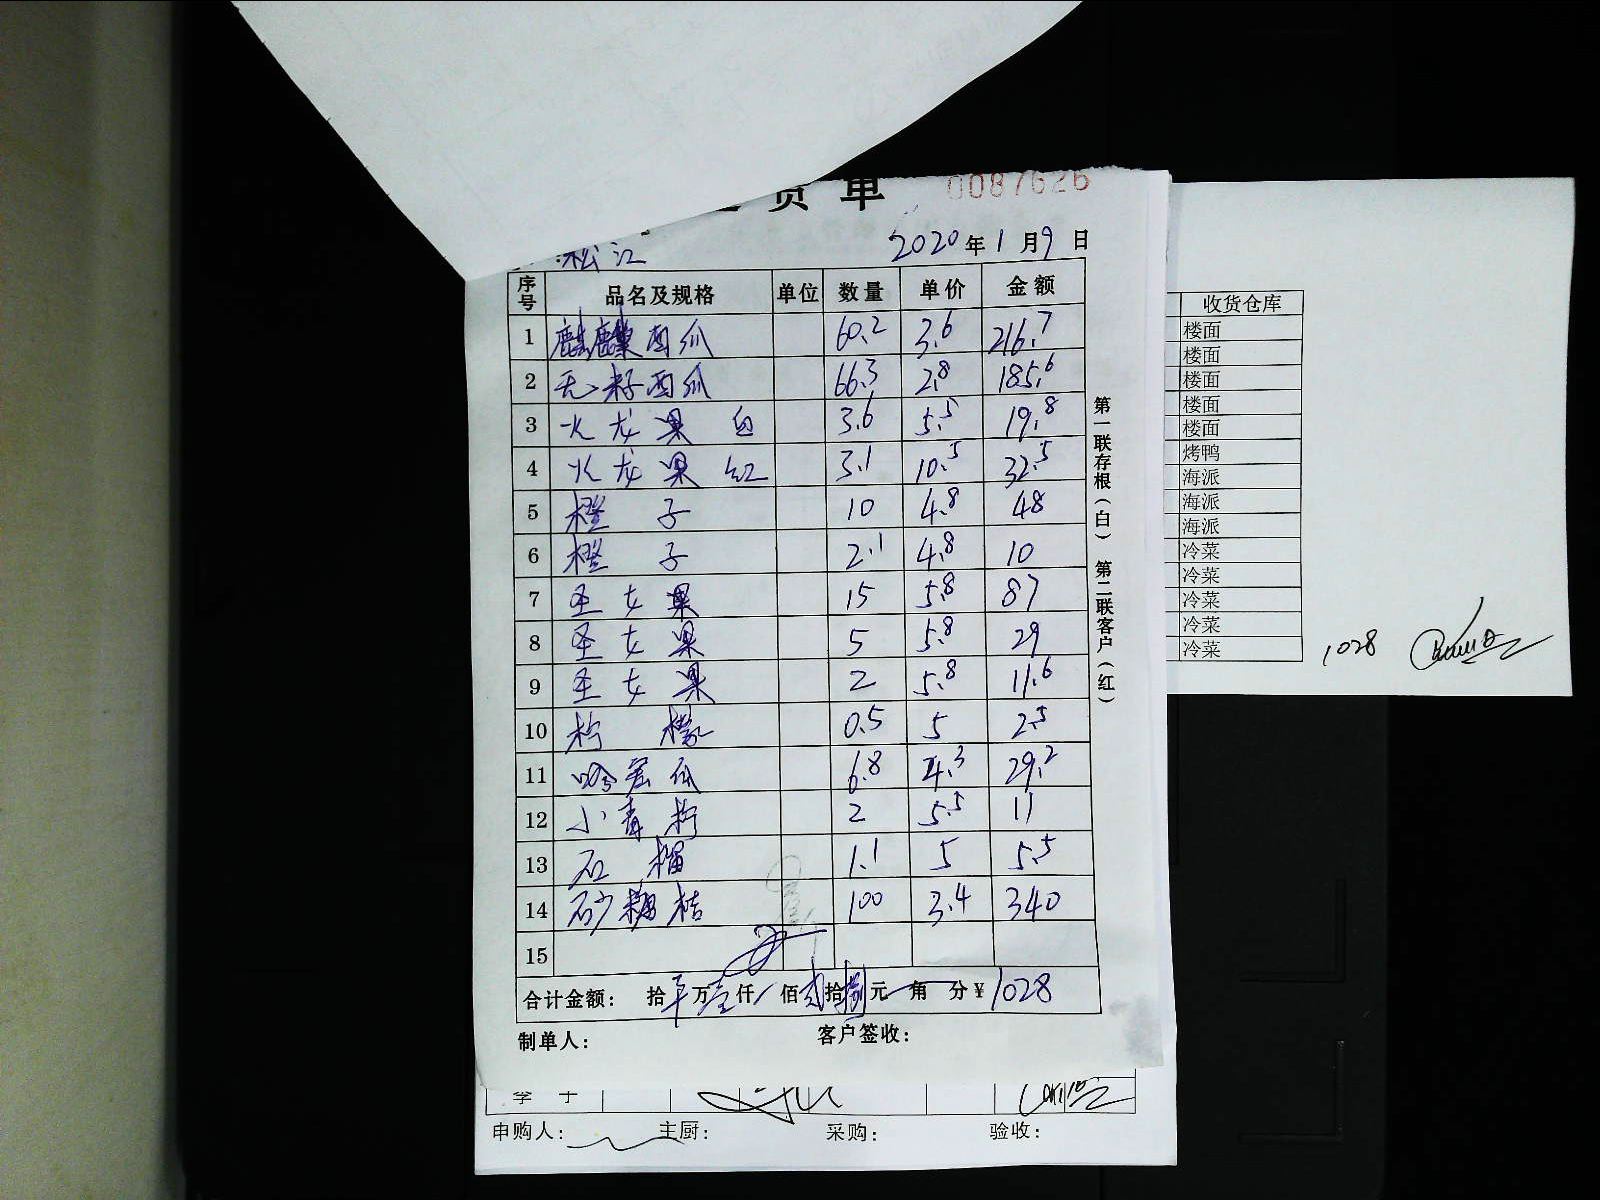 货单 0087626
松江 2020年1月9日
序号 品名及规格 单位 数量 单价 金额
1 麒麟西瓜 60.2 3.6 216.7
2 无籽西瓜 66.3 2.8 185.6
3 火龙果 白 3.6 5.5 19.8
4 火龙果 红 3.1 10.5 32.5
5 橙子 10 4.8 48
6 橙子 2.1 4.8 10
7 圣女果 15 5.8 87
8 圣女果 5 5.8 29
9 圣女果 2 5.8 11.6
10 柠檬 0.5 5 2.5
11 哈蜜瓜 6.8 4.3 29.2
12 小青柠 2 5.5 11
13 石榴 1.1 5 5.5
14 砂糖桔 100 3.4 340
15
合计金额: 拾 万壹仟 佰贰拾捌元 角 分¥1028
制单人: 客户签收:
第一联存根(白) 第二联客户(红)
李子
申购人: 主厨: 采购: 验收:
收货仓库
楼面
楼面
楼面
楼面
楼面
烤鸭
海派
海派
海派
冷菜
冷菜
冷菜
冷菜
冷菜
1028